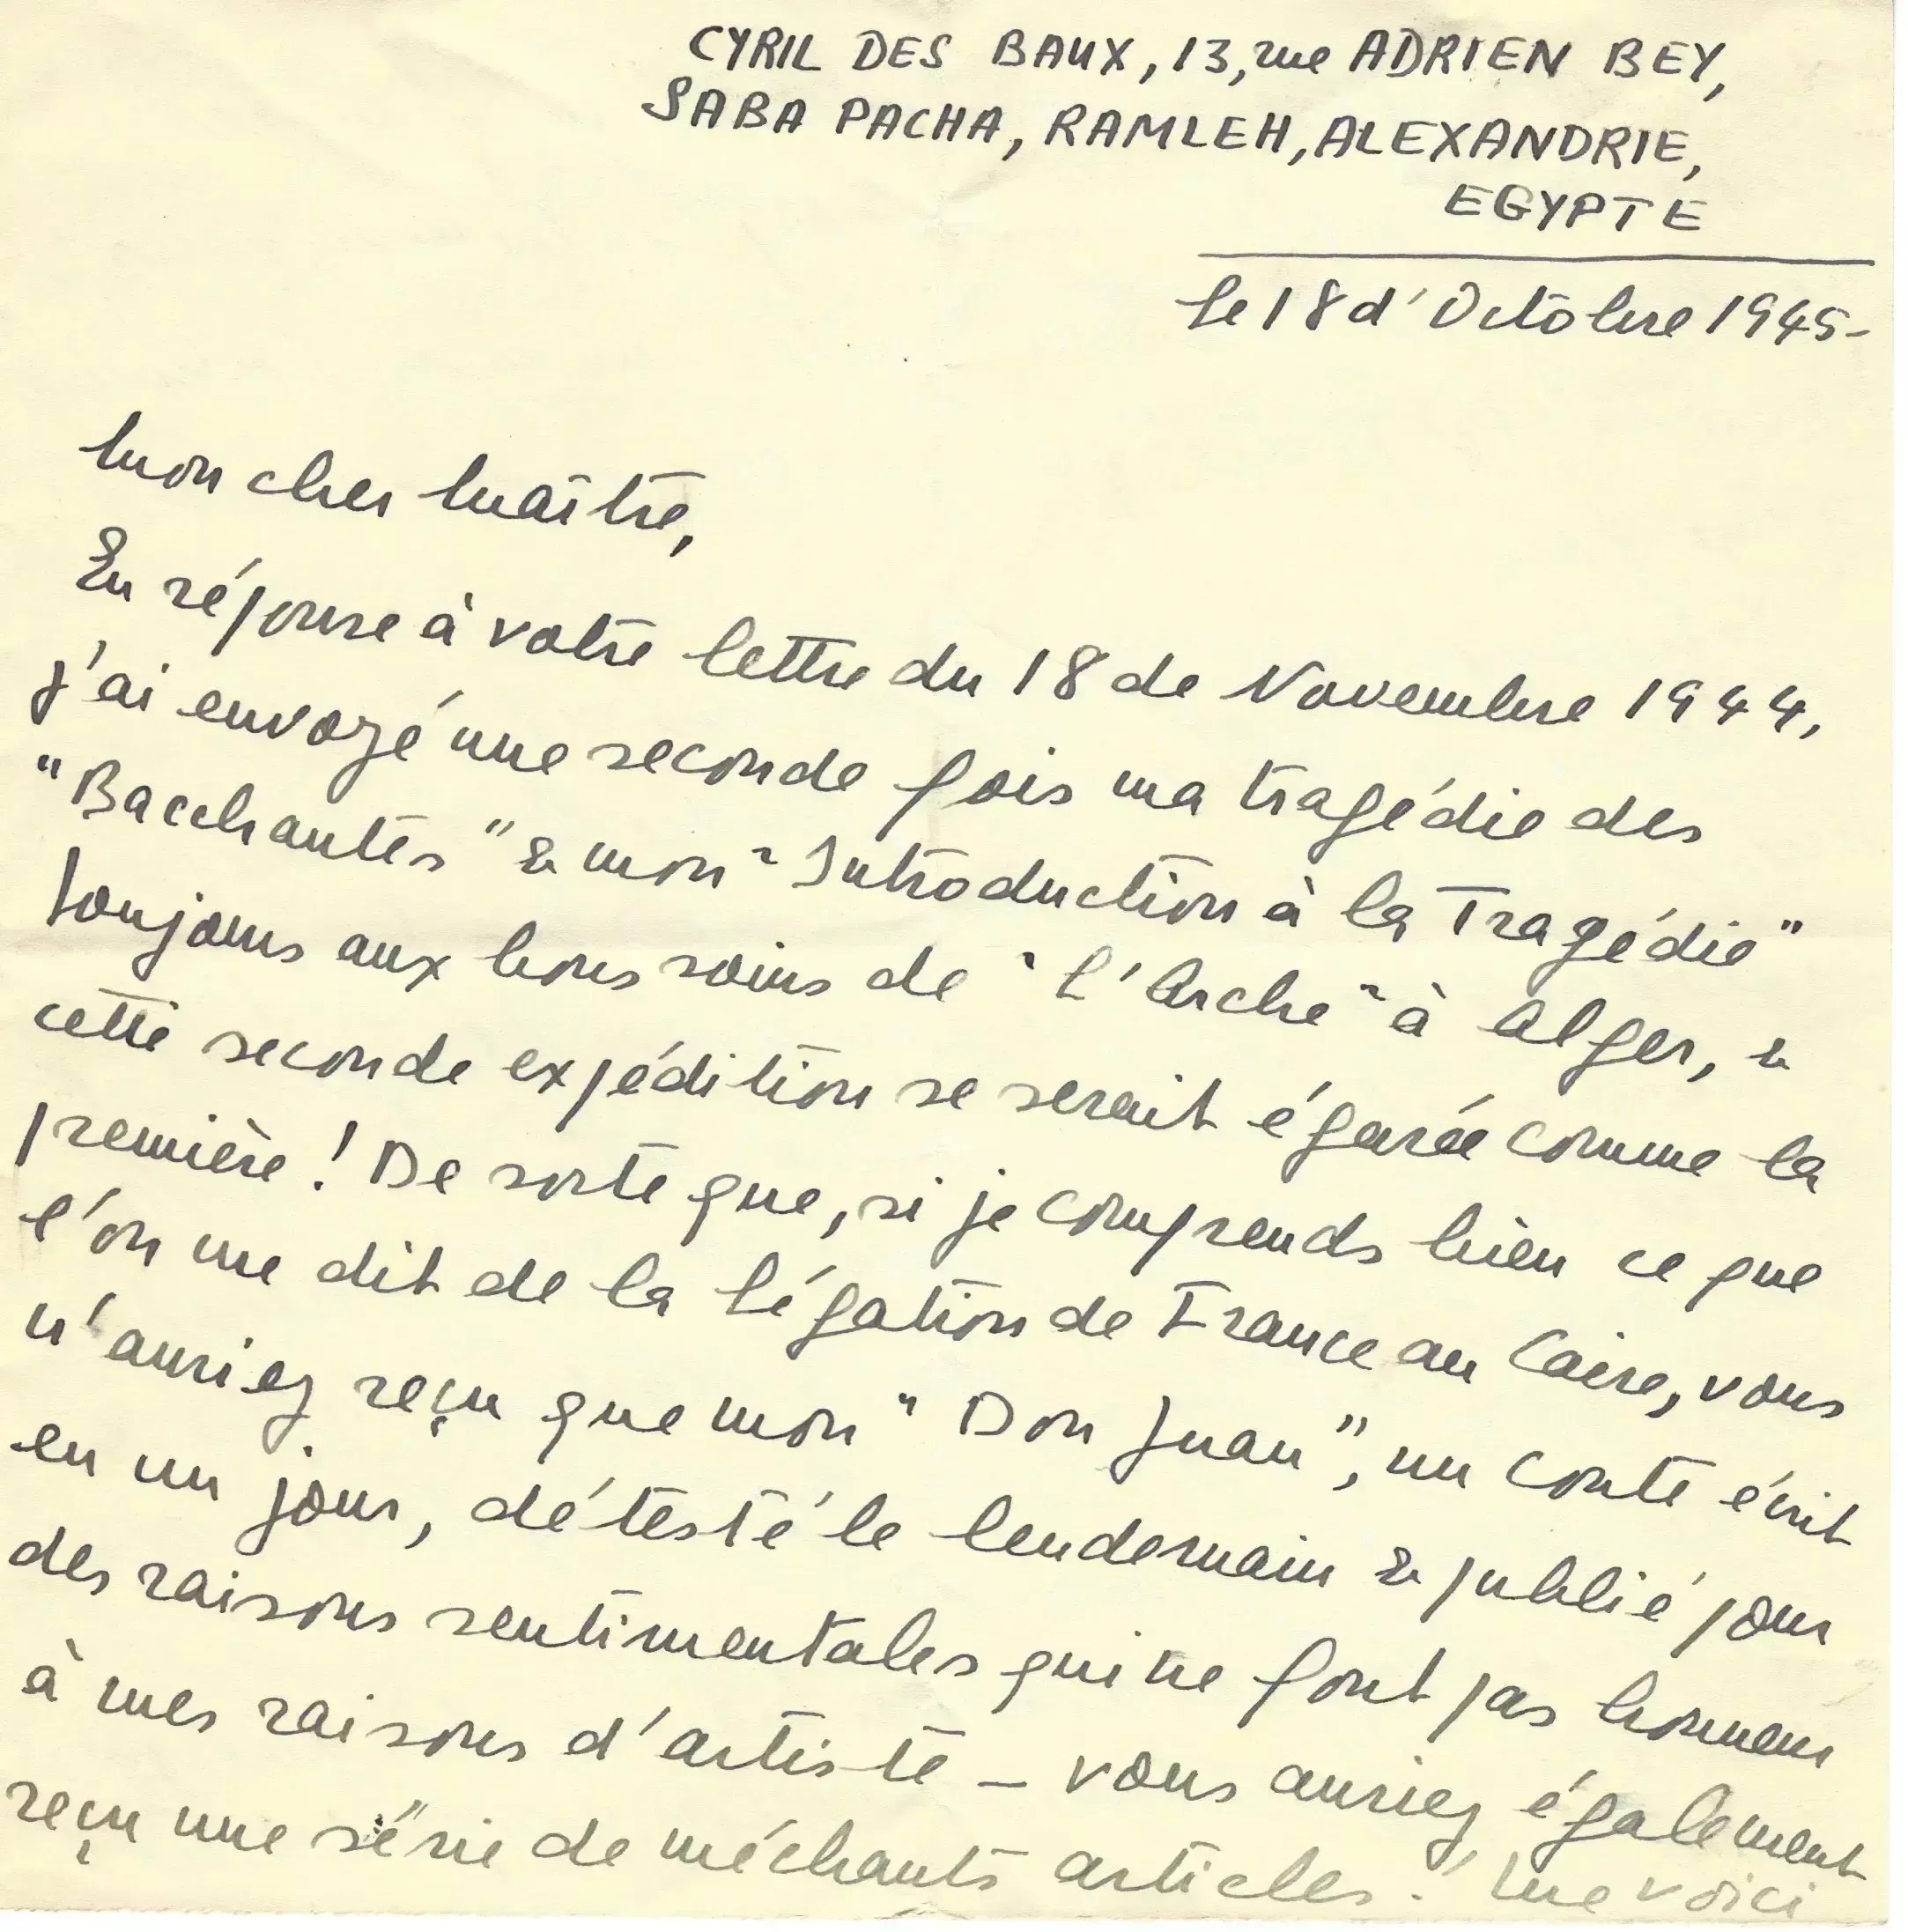 CYRIL DES BAUX, 13, rue ADRIEN BEY,
SABA PACHA, RAMLEH, ALEXANDRIE,
EGYPTE
le 18 d'Octobre 1945-
Mon cher Maître,
En réponse à votre lettre du 18 de Novembre 1944,
j'ai envoyé une seconde fois ma tragédie des
"Bacchantes" & mon "Introduction à la Tragédie"
toujours aux bons soins de "L'Arche" à Alger, &
cette seconde expédition se serait égarée comme la
première! De sorte que, si je comprends bien ce que
l'on me dit de la Légation de France au Caire, vous
n'auriez reçu que mon "Don Juan", un conte écrit
en un jour, détesté le lendemain & publié pour
des raisons sentimentales qui ne font pas honneur
à mes raisons d'artiste – vous auriez également
reçu une série de méchants articles! Me voici